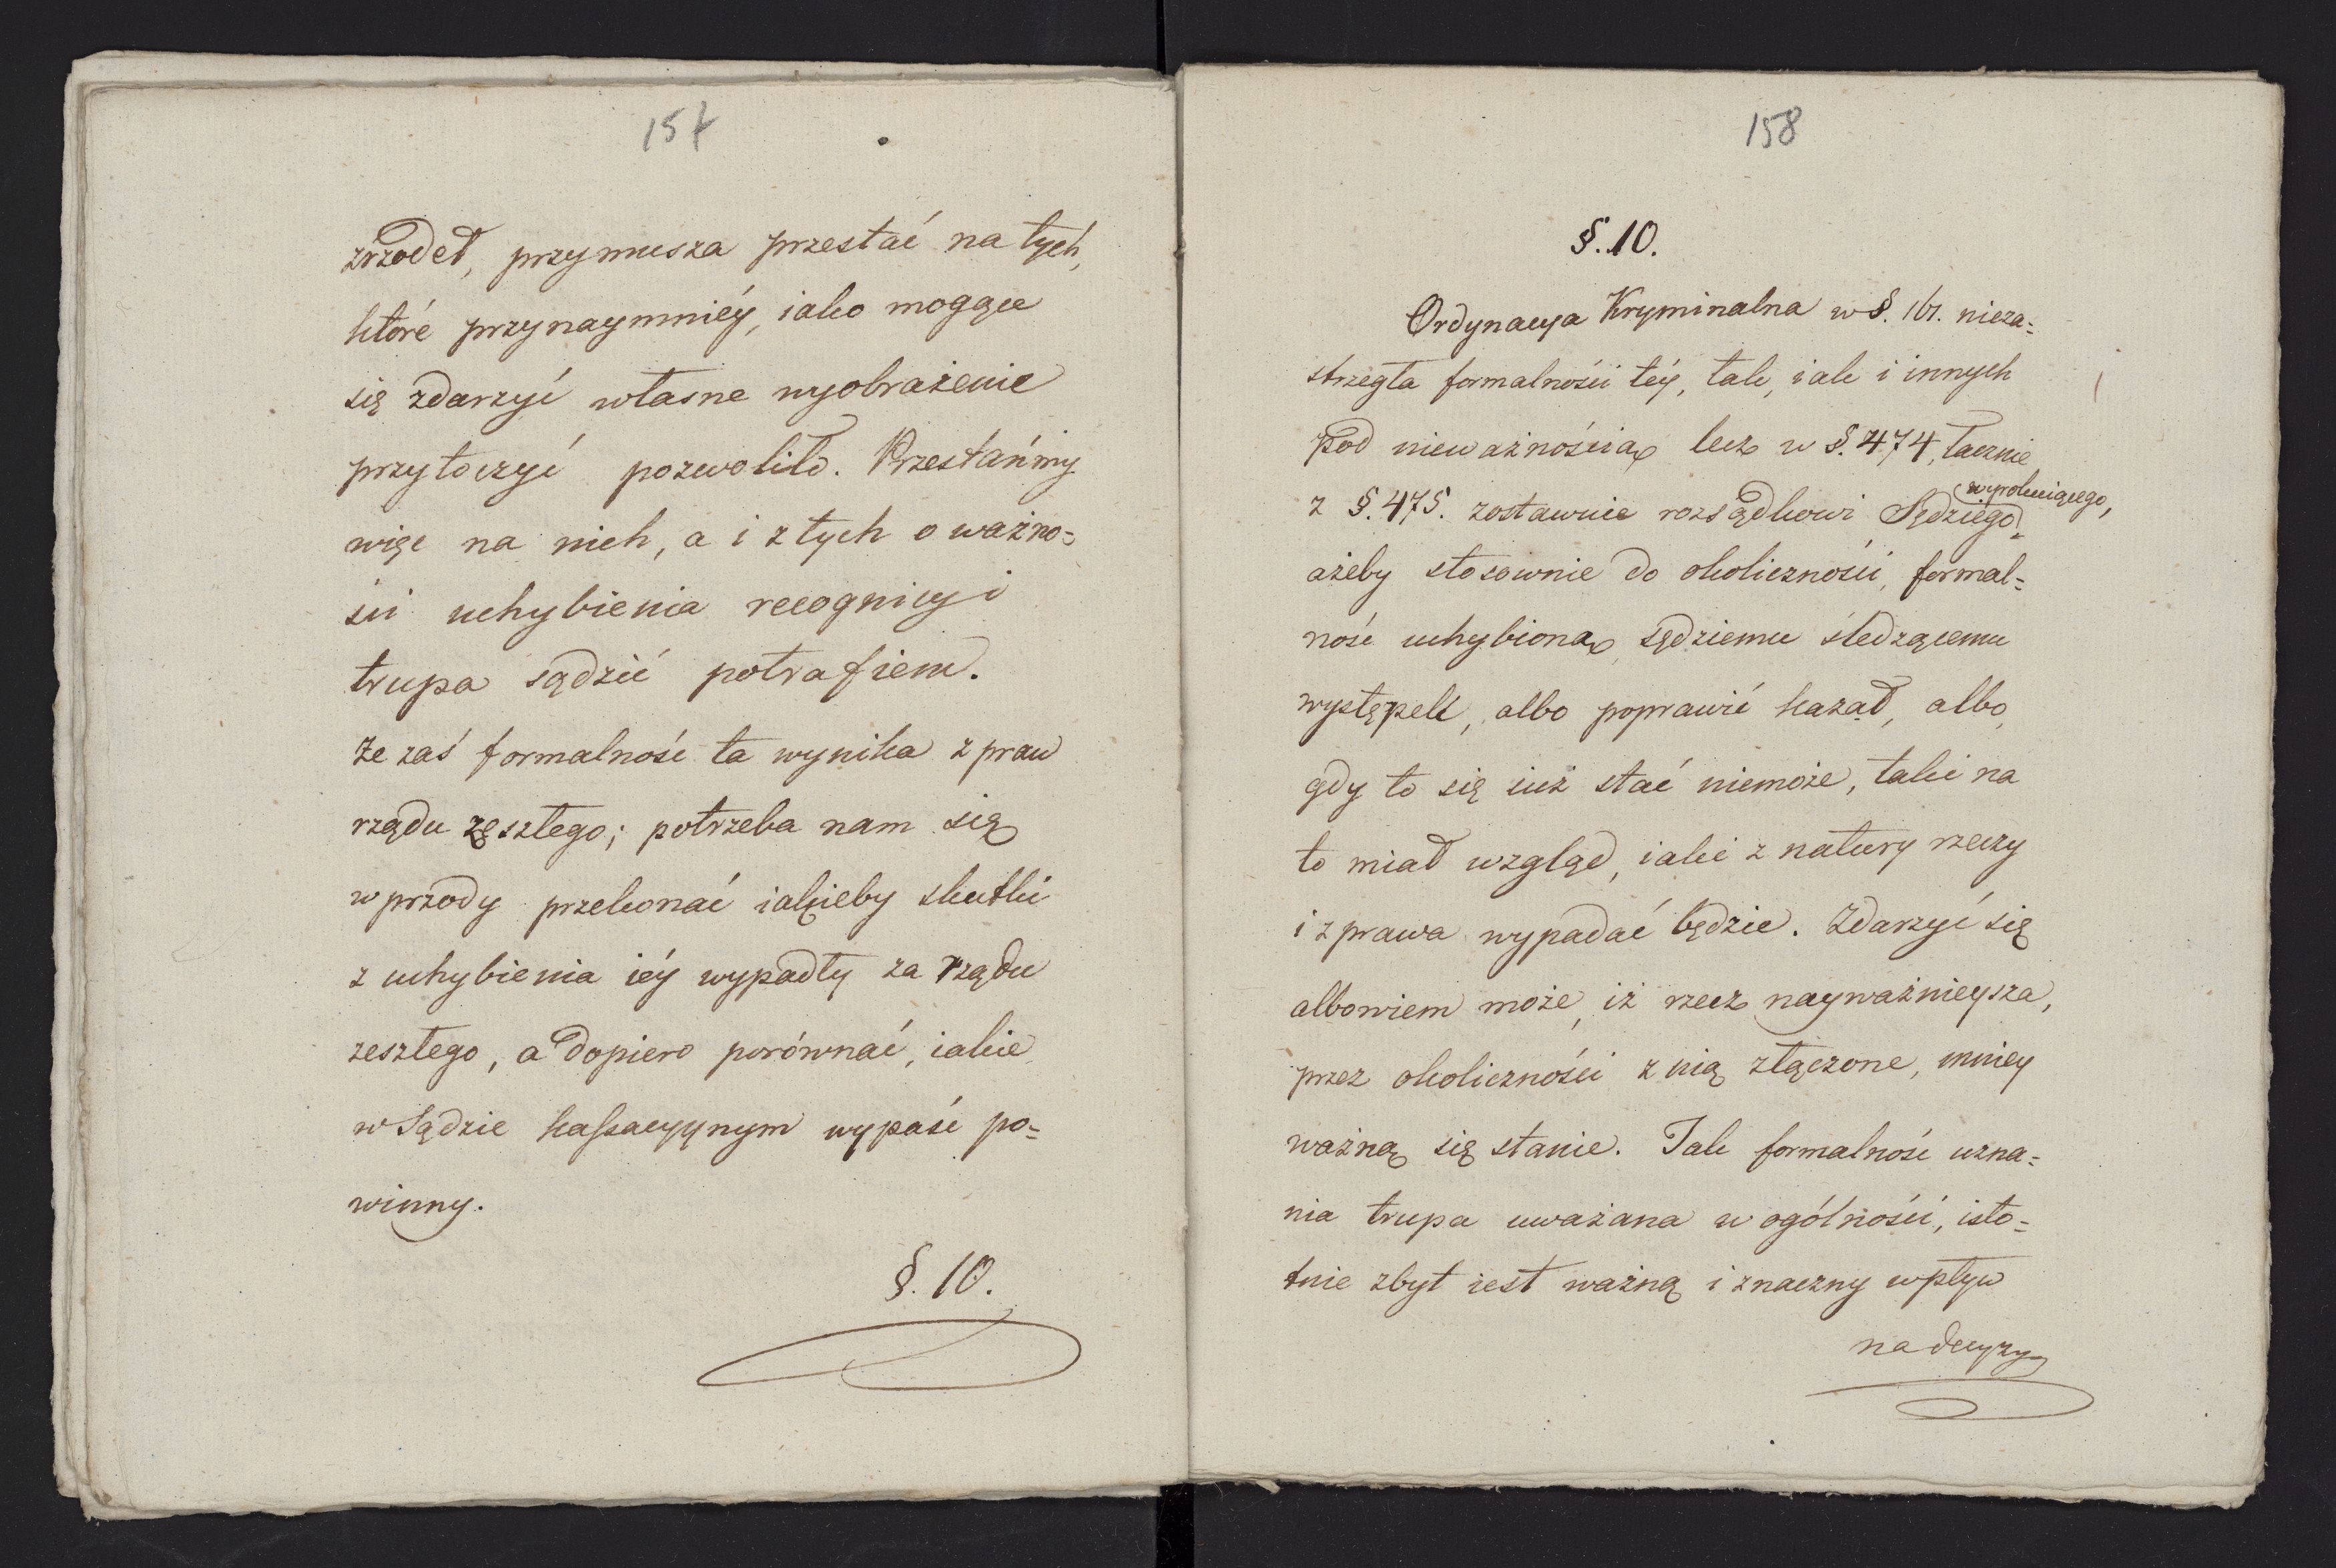 157
zrzodeł, przymusza przestać na tych,
które przynaymniéy, iako mogące
się zdarzyć własne wyobrażenie
przytoczyć pozwoliło. Przestańmy
więc na nich, a i z tych o ważno=
ści uchybienia recognicyi
trupa sądzić potrafiem.
Że zaś formalność ta wynika z praw
rządu zeszłego; potrzeba nam się
wprzody przekonać iakieby skutki
z uchybienia iéy wypadły za rządu
zeszłego, a dopiero porównać, iakie
w Sądzie kassacyynym wypaść po=
winny.
§. 10.
158
§. 10.
Ordynacya Kryminalna w §. 161. nieza=
strzegła formalności téy, tak, iak i innych
pod nieważnością lecz w §. 474, łącznie
z §. 475. zostawuie rozsądkowi Sędziego wyrokuiącego,
ażeby stosownie do okoliczności, formal=
ność uchybioną sędziemu śledzącemu
występek, albo poprawić kazał, albo,
gdy to się iuż stać niemoże, taki na
to miał wzgląd, iaki z natury rzeczy
i z prawa wypadać będzie. Zdarzyć się
albowiem może, iż rzecz nayważnieysza,
przez okoliczności z nią złączone, mniey
ważną się stanie. Tak formalność uzna=
nia trupa uważana w ogólności, isto=
tnie zbyt iest ważną i znaczny wpływ
na decyzyą